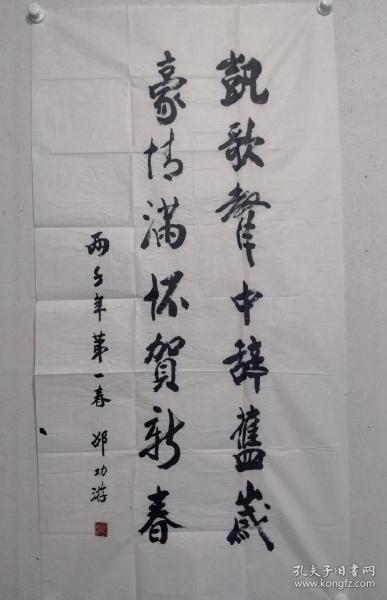 凱歌聲中辞舊歲
豪情滿懷賀新春
兩千年第一春 邵功游
孔夫子旧书网
www.kongfz.com